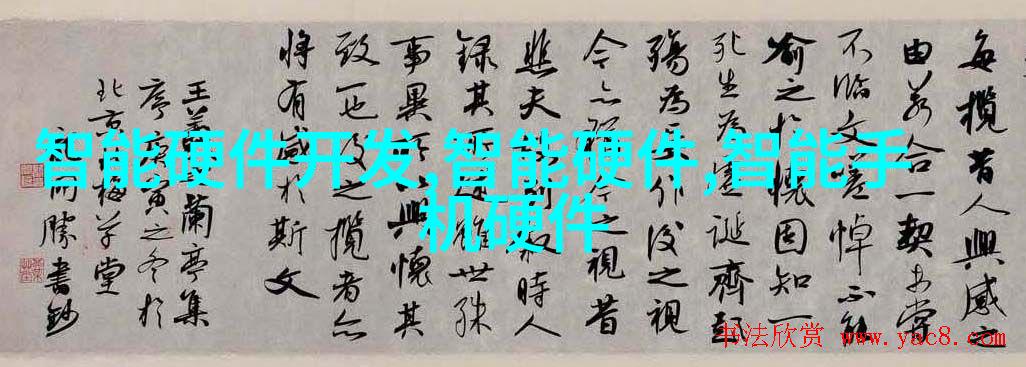 每攬昔人興感之
由若合一契未嘗
不臨文嗟悼不能
喻之於懷固知一
死生為虛誕齊彭
殤為妄作後之視
今亦猶今之視昔
悲夫列時人
錄其所雖世殊
事異所興懷其
致一也後之攬者亦
將有感於斯文
王羲蘭亭集
序寅之冬於
北京梅堂
而勝書鈔
智能硬件开发,智能硬件,智能手
机硬件
书法欣赏 www.yac8.com